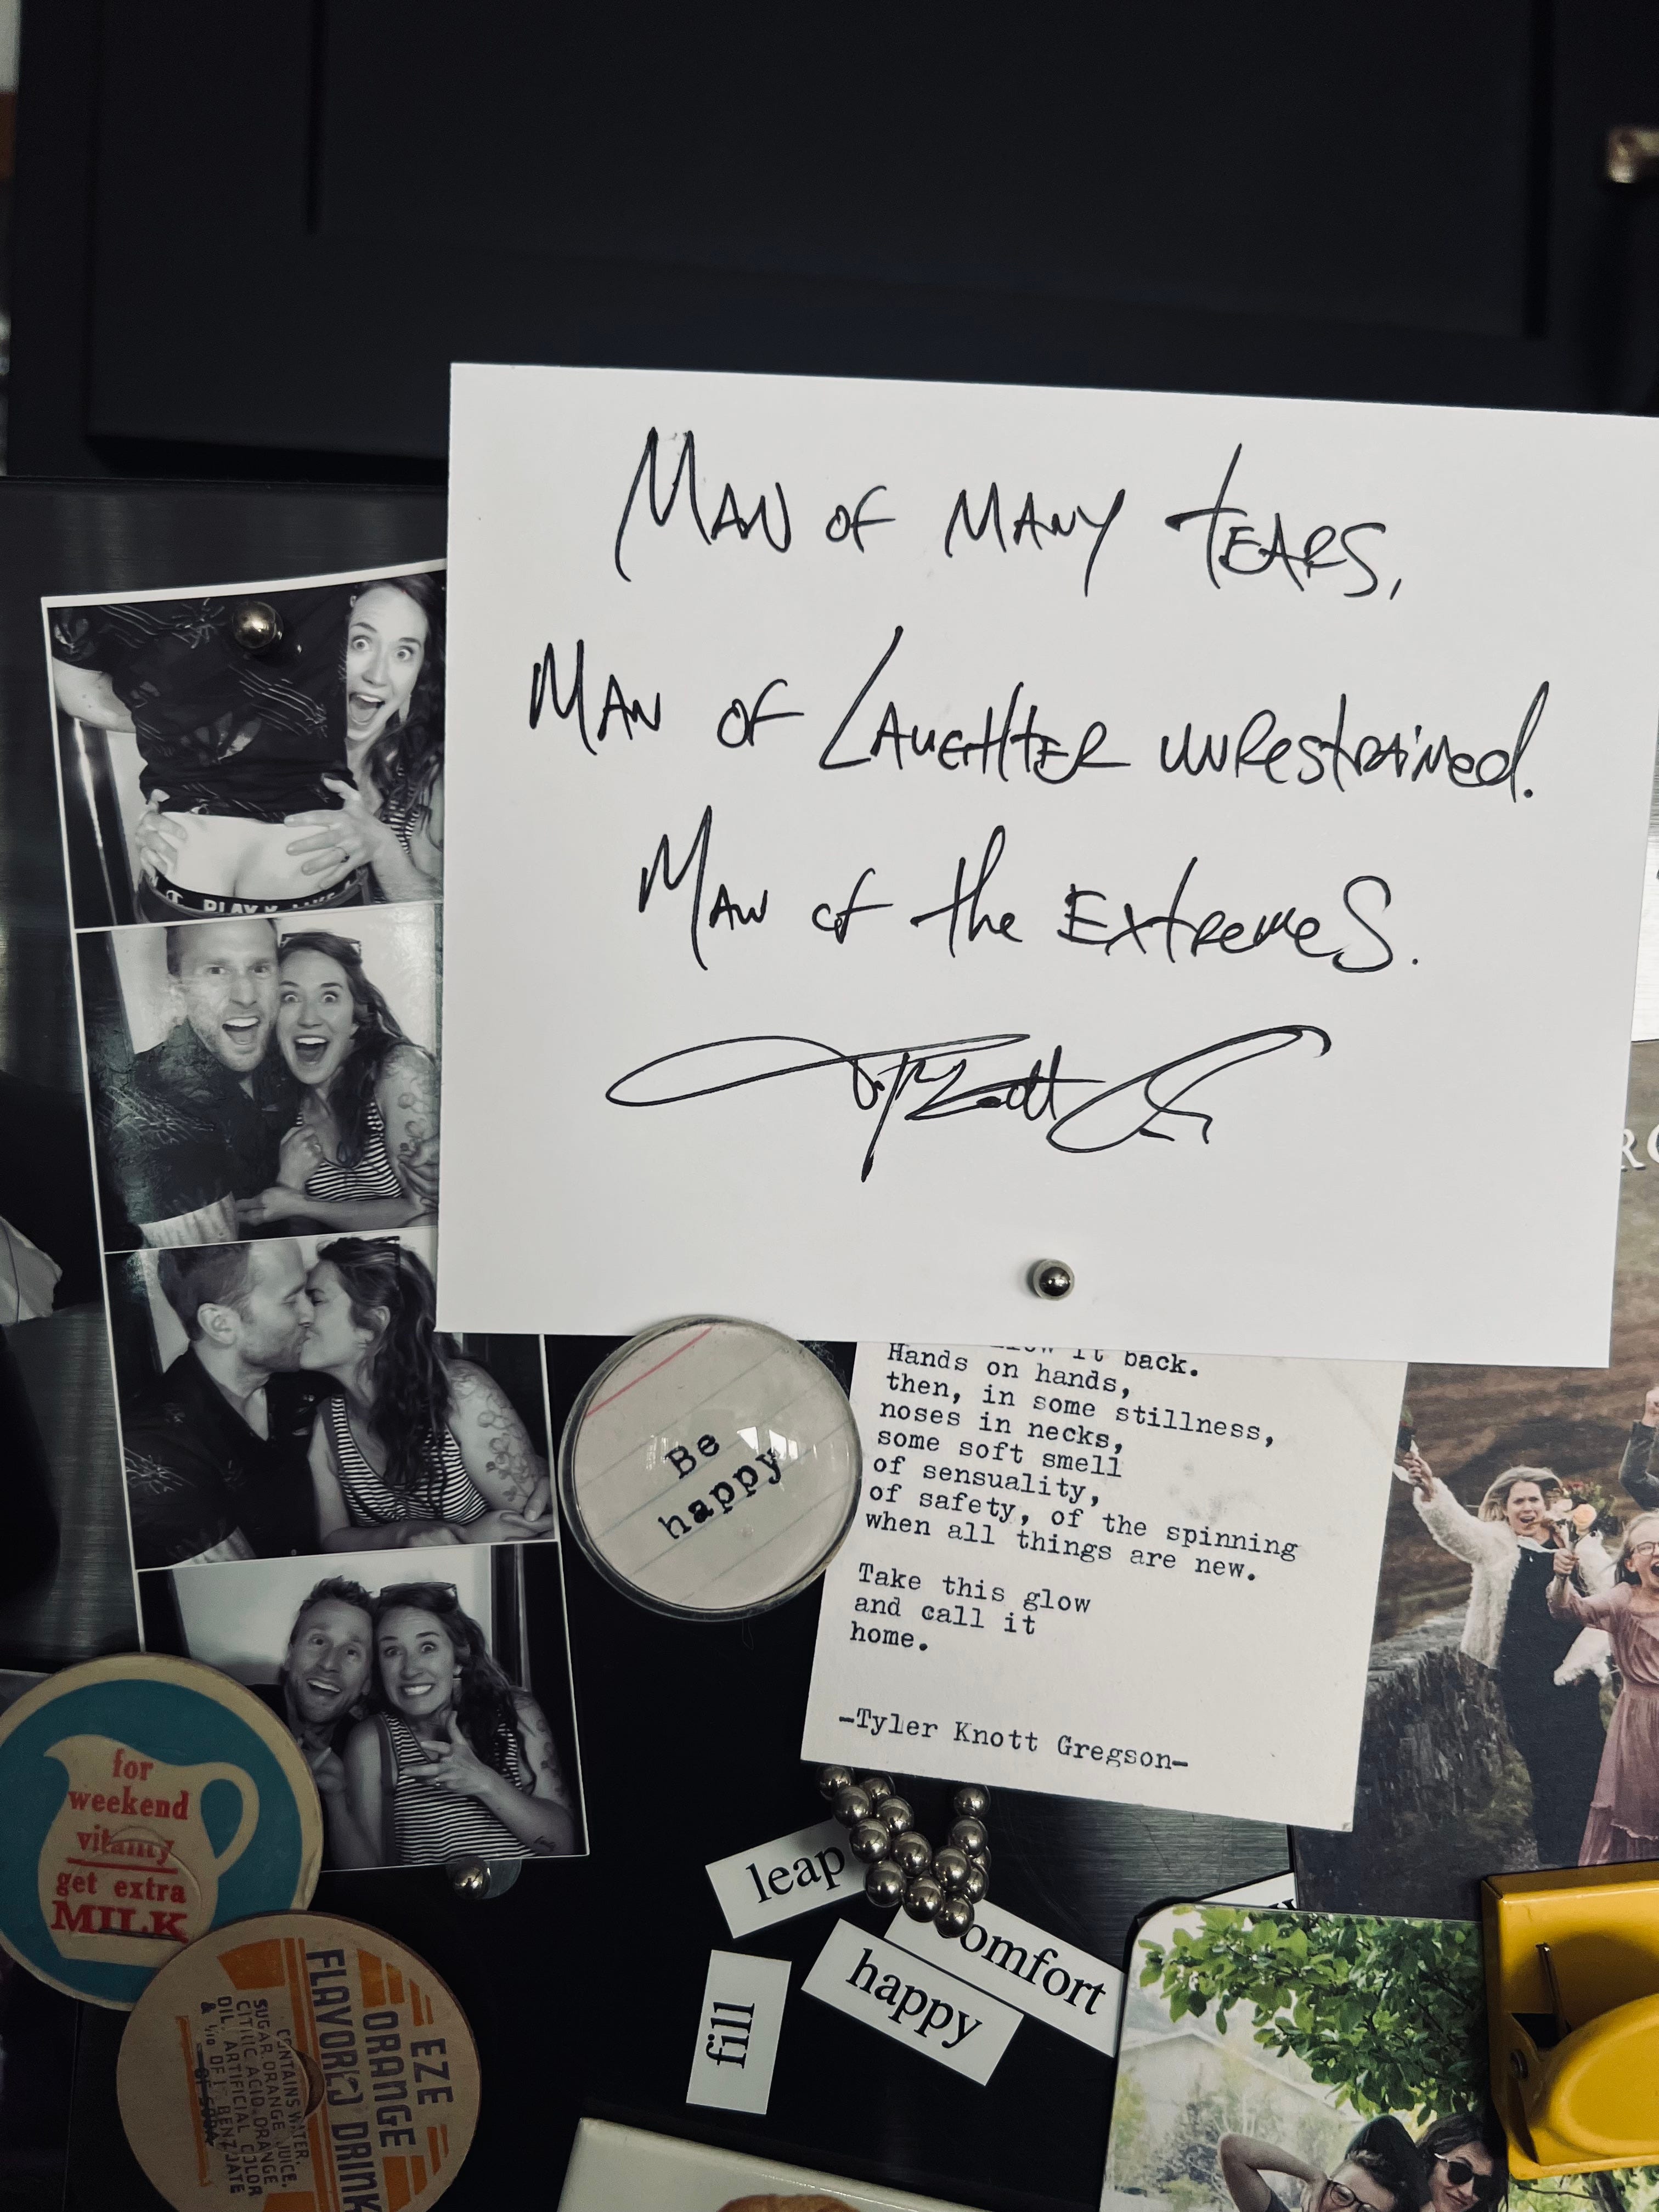 Man of many tears,
Man of Laughter unrestrained.
Man of the Extremes.
it back.
Hands on hands,
then, in some stillness,
noses in necks,
some soft smell
of sensuality,
of safety, of the spinning
when all things are new.
Take this glow
and call it
home.
-Tyler Knott Gregson-
Be
happy
for
weekend
vitality
get extra
MILK
EZE
ORANGE
FLAVORED DRINK
CONTAINS WATER,
SUGAR, ORANGE JUICE,
CITRIC ACID, ORANGE
OIL, ARTIFICIAL COLOR
& 1/10 OF 1% BENZOATE
OF SODA
leap
omfort
happy
fill